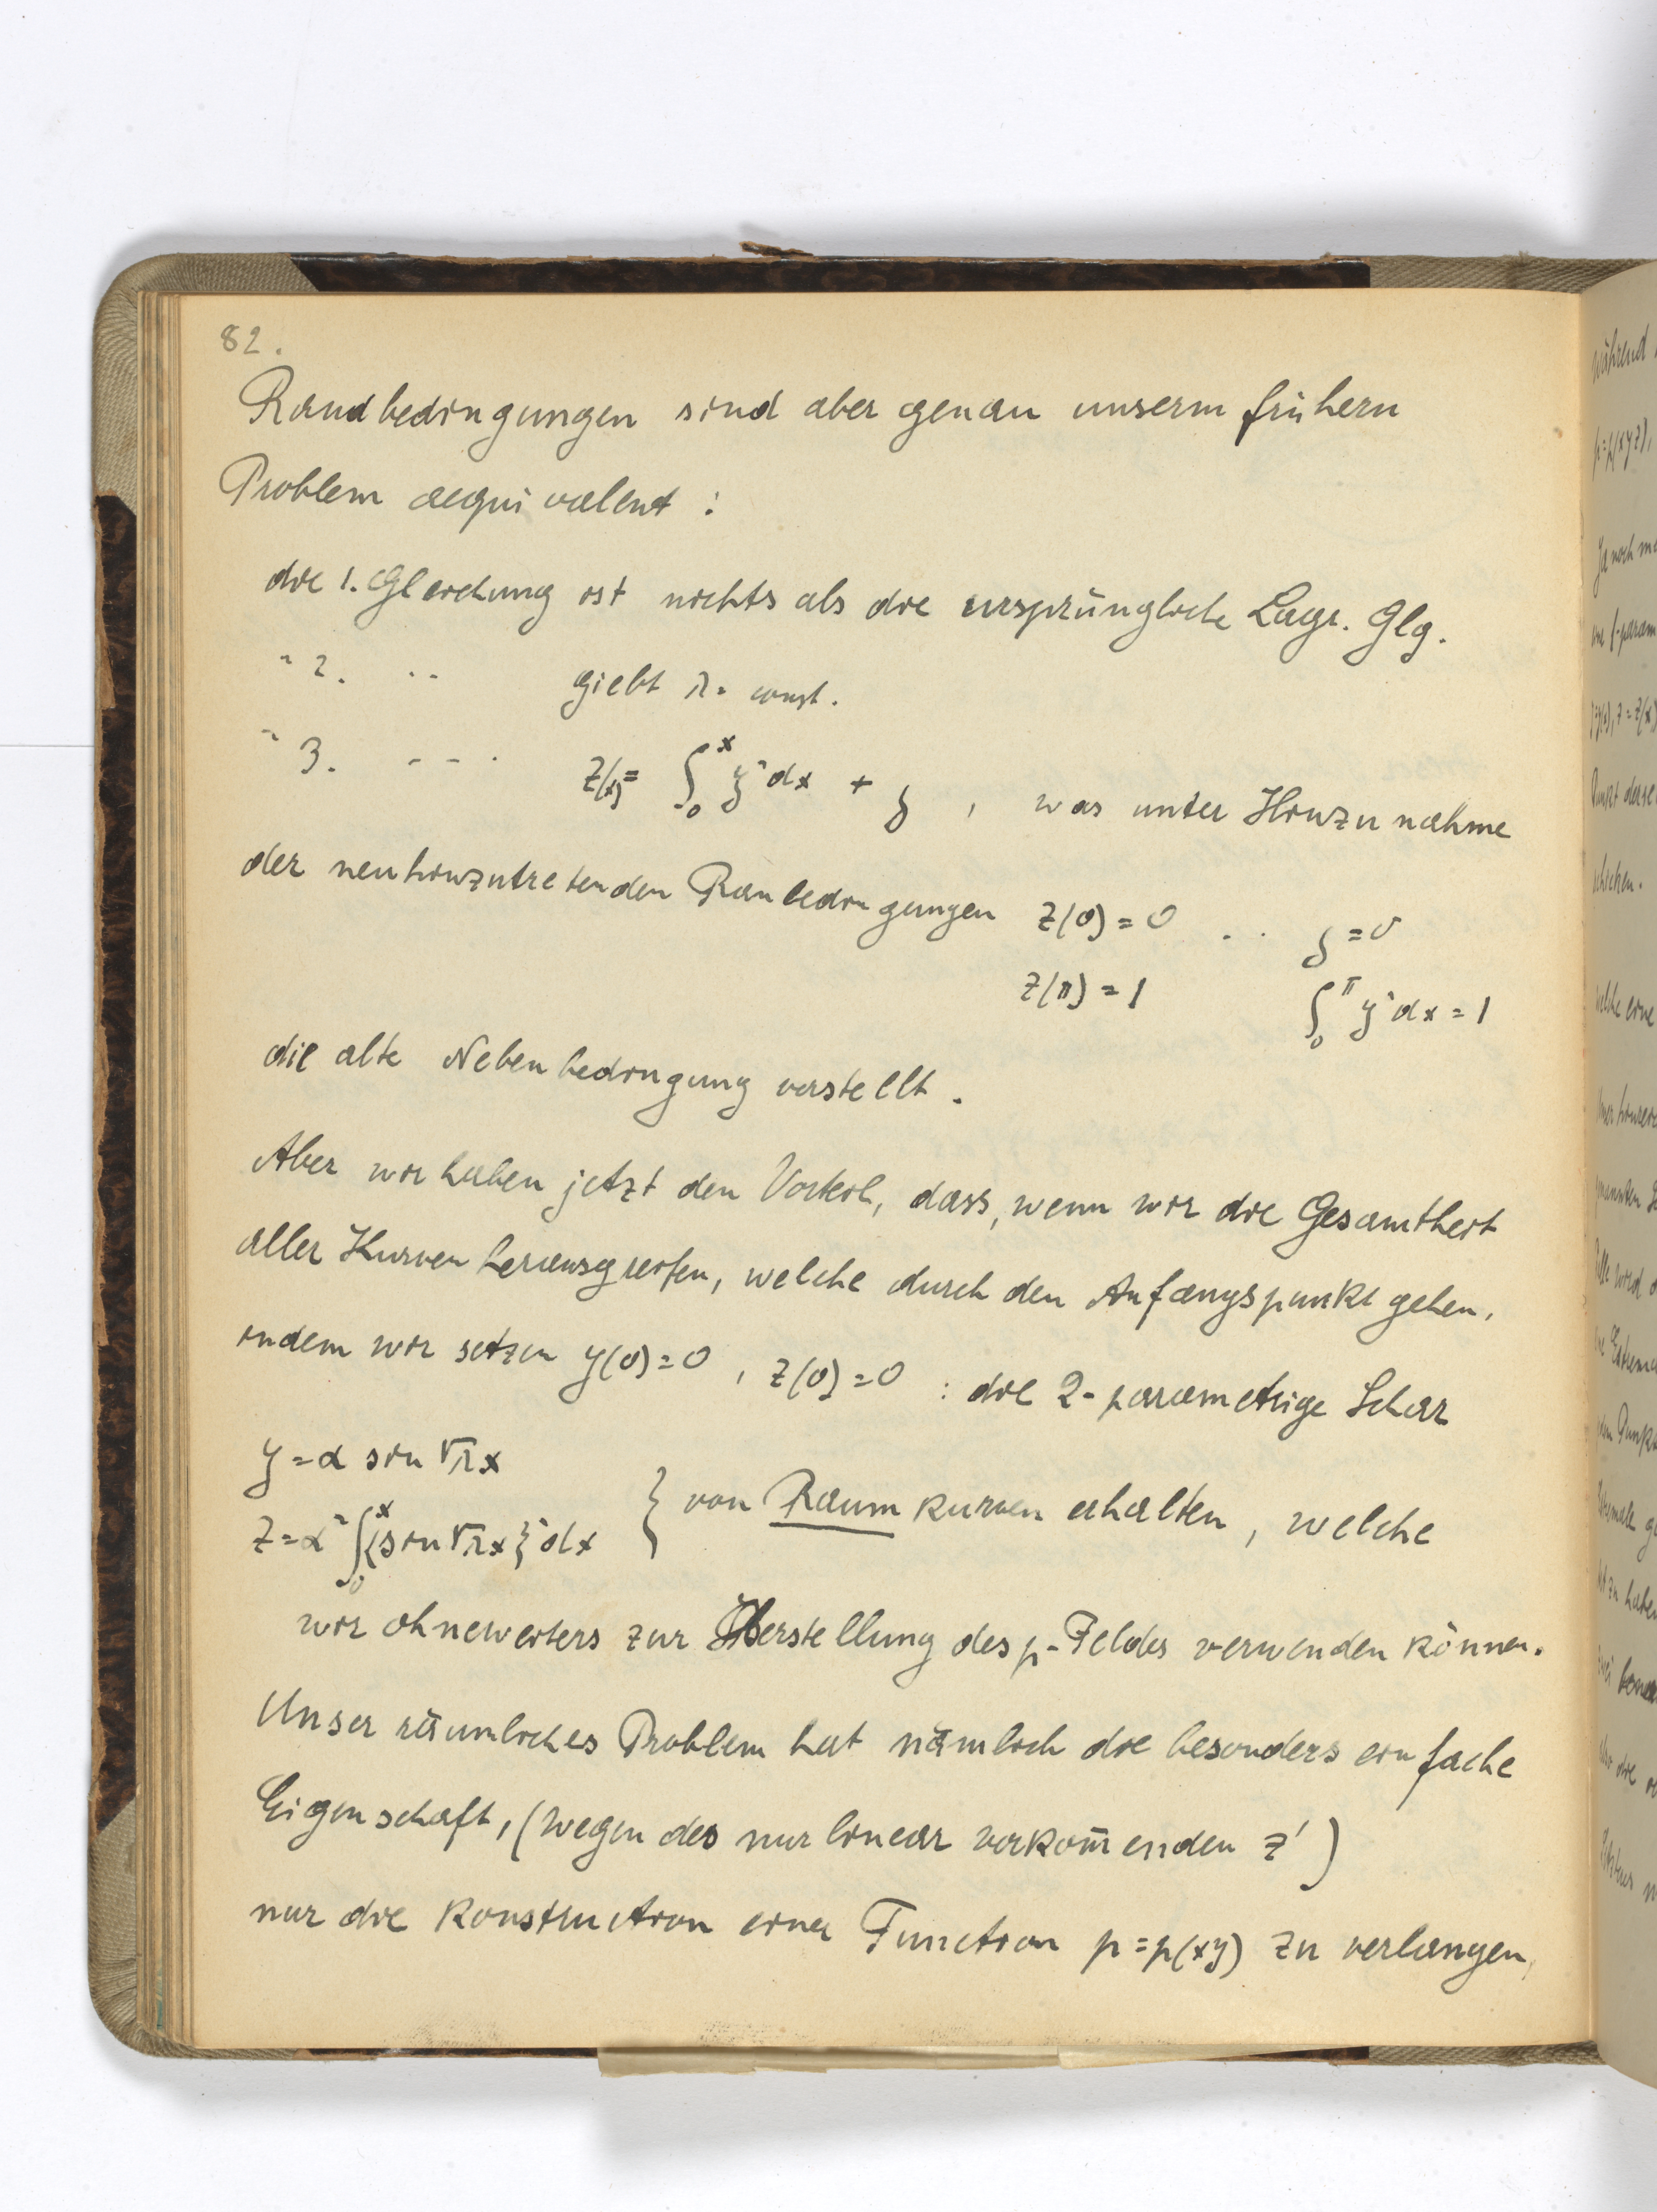 82.
Randbedingungen sind aber genau unserm frühern
Problem aequivalent :
die 1. Gleichung ist nichts als die ursprüngliche Lagr. Glg.
" 2. " giebt λ = const.
" 3. - - - z(x) = ∫₀ˣ y² dx + δ , was unter Hinzunahme
der neuhinzutretenden Ranbedingungen z(0) = 0 . . δ = 0
z(π) = 1 ∫₀^π y² dx = 1
die alte Nebenbedingung vorstellt .
Aber wir haben jetzt den Vorteil, dass, wenn wir die Gesamtheit
aller Kurven herausgreifen, welche durch den Anfangspunkt gehen,
indem wir setzen y(0) = 0 , z(0) = 0 : die 2-parametrige Schar
y = α sin √λ x
z = α² ∫₀ˣ {sin √λ x}² dx } von Raumkurven erhalten , welche
wir ohneweiters zur Herstellung des p-Feldes verwenden können.
Unser räumliches Problem hat nämlich die besonders einfache
Eigenschaft, (wegen des nur linear vorkom̄enden z')
nur die Konstruction einer Function p = p(xy) zu verlangen,
während
p=p(xyz),
Ja noch
schicken.
welche eine